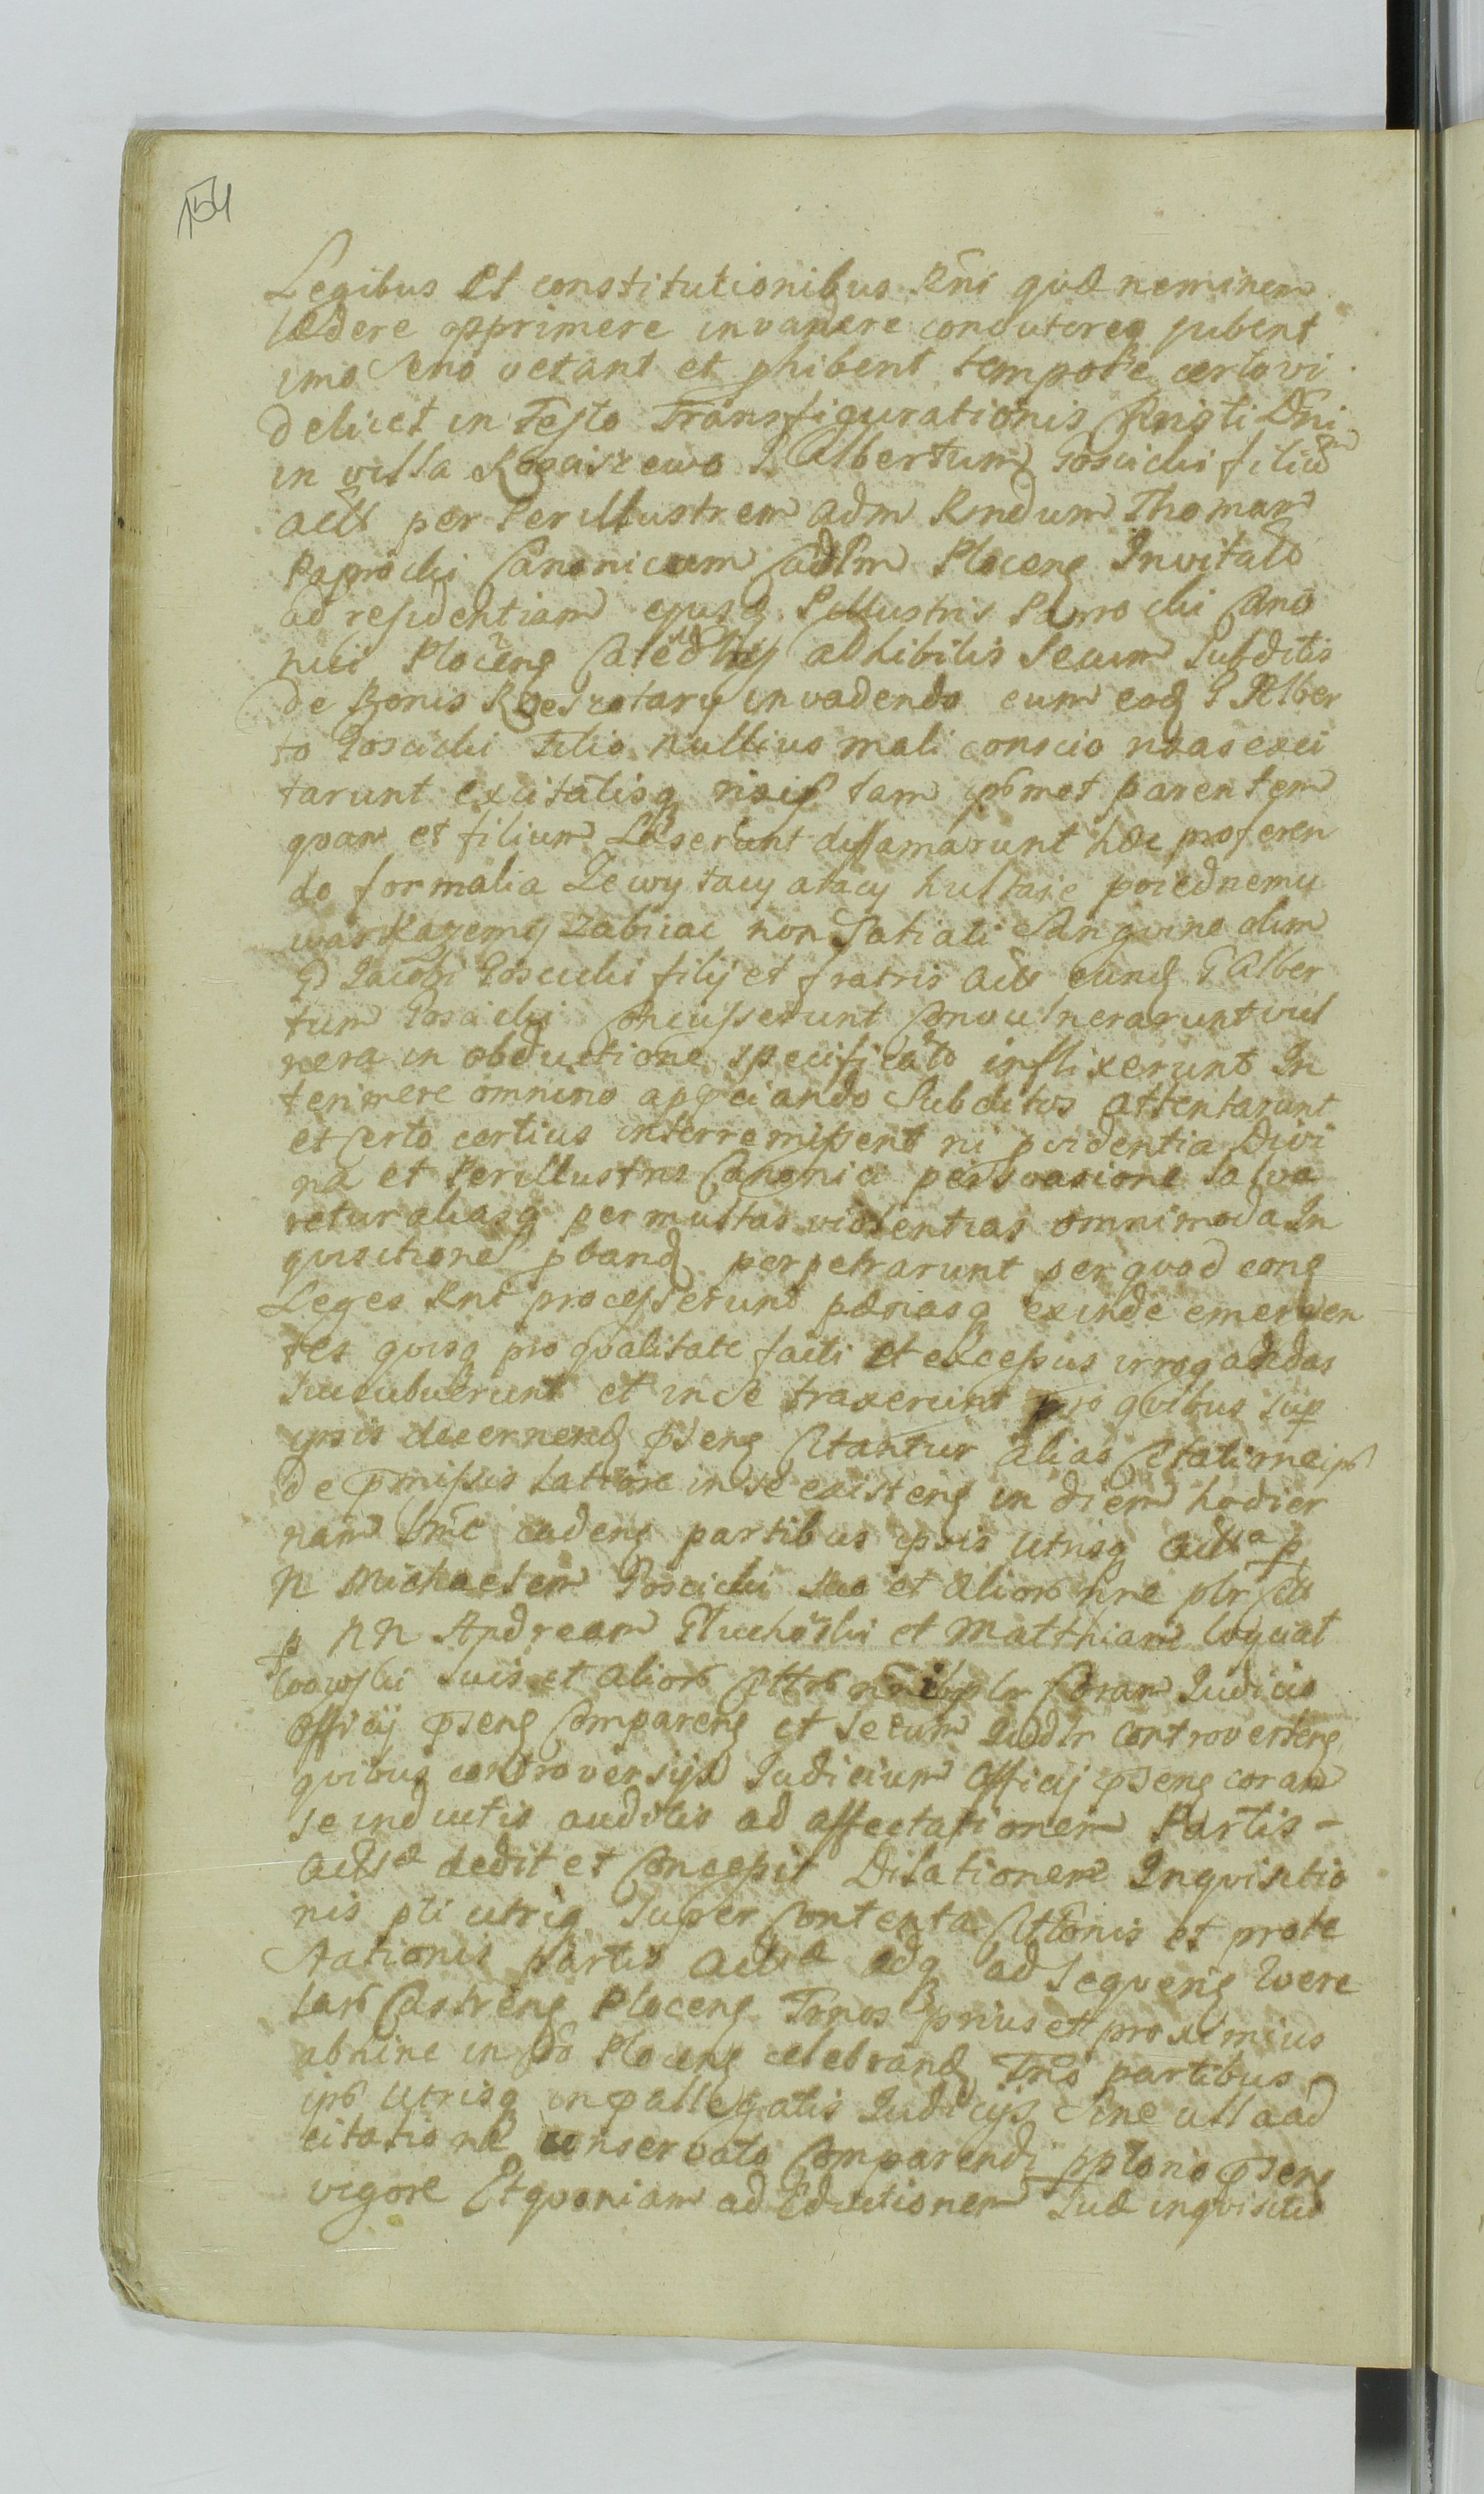 154
Legibus Et constitutionibus Rni quæ neminem
lædere opprimere invadere concutereq jubent
imo seno vetant et phibent tempore certo vi
delicet in Festo Transfigurationis Christi Dni
in villa Rogaiszewo G Albertum Goscicki filiu
act per Perillustrem adm Rndum Thomam
Paprocki Canonicum Cadlm Ploceng Invitato
ad residentiam ejusd Pillustris Paprocki Cano
nici Ploceng adhibitis Secum Subditis
de Bonis invadendo cum eod G Alber
to Goscicki Filio nullius mali conscio rixas exci
tarunt excitatisq rixis tam ipsmet parentem
quam et filium Læserunt diffamarunt hæc proferen
do formalia Ze wy tacy atacy hultaie poiednemu
was Kazemy Zabiiac non Satiati Sanguine olim
G Jacobi Goscicki filij et fratris act eund G Alber
tum Goscicki Concusserunt Convulnerarunt vul
nera in obductione specificato inflixerunt In
terimere omnino appciando Subditos attentarunt
et Certo certius interremissent ni pvidentia Divi
na et Perillustris Canonici persvasione Salva
retur aliasq permultas violentias omnimoda In
quisitione pband perpetrarunt per quod cong
Leges Rni processerunt pænasq exinde emergen
tes quisq pro qvalitate facti et excessus irrogandas
Succubuerunt et in se traxerunt pro quibus sup
ipsis decernend pseng Citantur alias Citationeips
de pmissis latiore in se existeng in diem hodier
nam cadeng partibus ipsis utrisq acta p
N Michaelem Goscicki suo et alior nne plr
p NN Andream Gluchoski et Matthiam
suis et alior plr Coram Iudicio
Officij pseng Compareng et Secum Iudlr controverteng
quibus controversijs Iudicium Officij pseng coram
se inductis auditis ad affectationem Partis
Actæ dedit et Concessit Dilationem Inqvisitio
nis pti utriq Super Contenta Cittonis et prote
stationis Partis Actæ adq ad Seqveng
Castreng Ploceng Trnos prius et proximius
abhinc in Ploceng celebrand Trnos partibus
ips utrisq in pallegatis Iudicijs Sine ulla ad
citatione conservato Comparendi pptorio pseng
vigore Et quoniam ad Eductionem Suæ inqvisitio